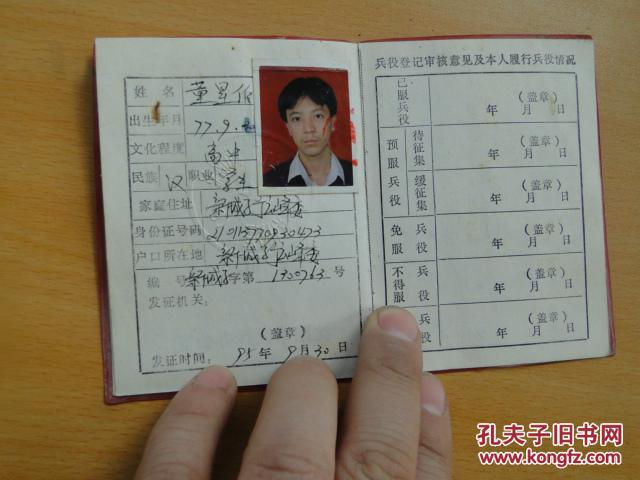 姓名 董星
出生年月 77.9.
文化程度 高中
民族 汉 职业 学生
家庭住址
身份证号码
户口所在地
编号 字第 1900763 号
发证机关：
（盖章）
发证时间： 95年 9月30日
兵役登记审核意见及本人履行兵役情况
已服兵役 （盖章） 年 月 日
预服兵役 待征集 （盖章） 年 月 日
缓征集 （盖章） 年 月 日
免服兵役 （盖章） 年 月 日
不得服兵役 （盖章） 年 月 日
兵役 （盖章） 年 月 日
孔夫子旧书网
www.kongfz.com